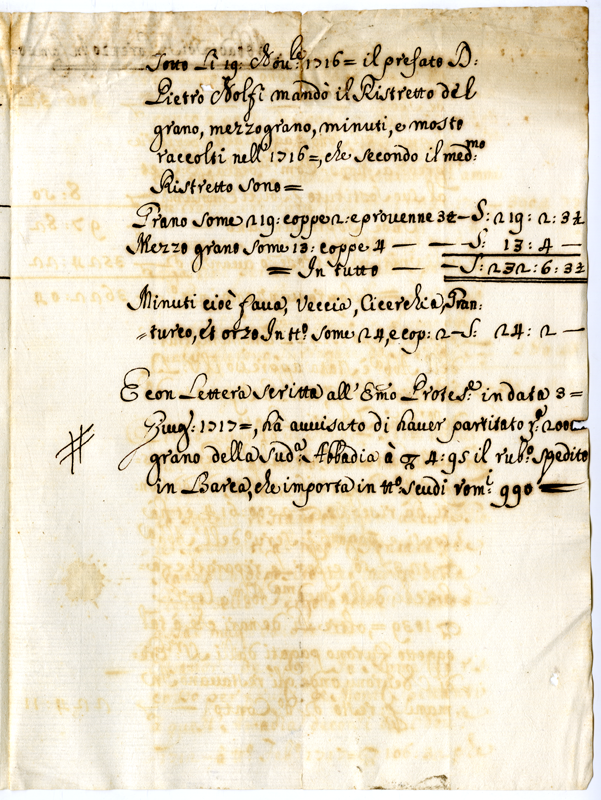 Sotto li 19: Nov.le 1716= il prefato D:
Pietro Nolfi mandò il Ristretto del
grano, mezzograno, minuti, e mosto
raccolti nell' 1716=, che secondo il med:mo
Ristretto sono=
Grano some 219: coppe 2: e provenne 3½ — S: 219: 2: 3½
Mezzo grano some 13: coppe 4 — — S: 13: 4 —
= In tutto — — S: 232: 6: 3½
Minuti cioè fava, Veccia, Cicerchia, Gran:
=turco, et orzo In tt.o some 24, e cop: 2 — S: 24: 2 —
E con Lettera scritta all' Emo Protet.e in data 3=
Giug: 1717=, hà avvisato di haver partitato r.a 200
grano della Sud.a Abbadia à 4: 95 il rub.o spedito
in Barca, che importa in tt.o scudi rom.i 990